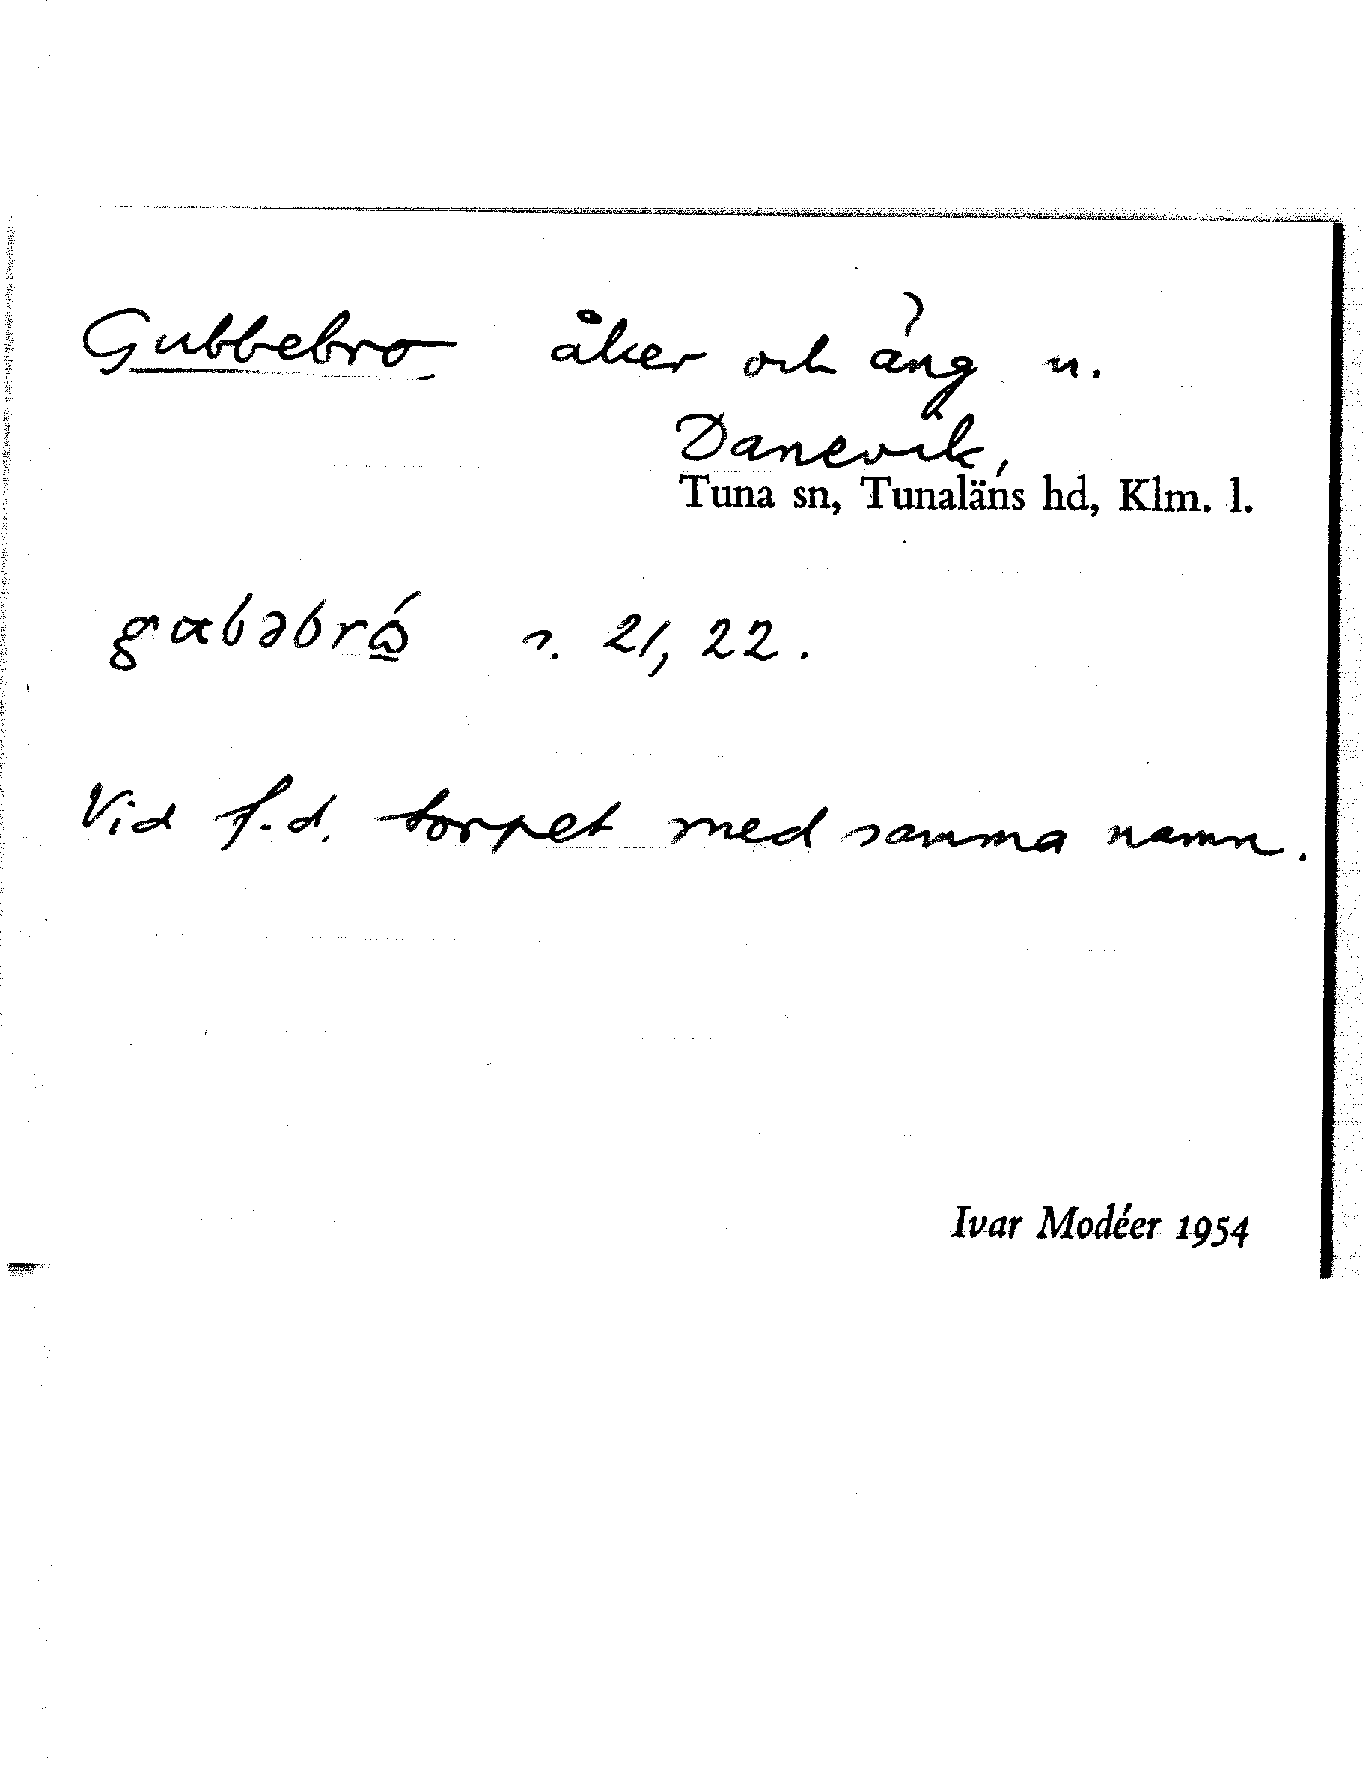 Gubbebro åker och äng u.
Danevik,
Tuna sn, Tunaläns hd, Klm. l.
gɑbəbró̲ s. 21, 22.
Vid f.d. torpet med samma namn.
Ivar Modéer 1954